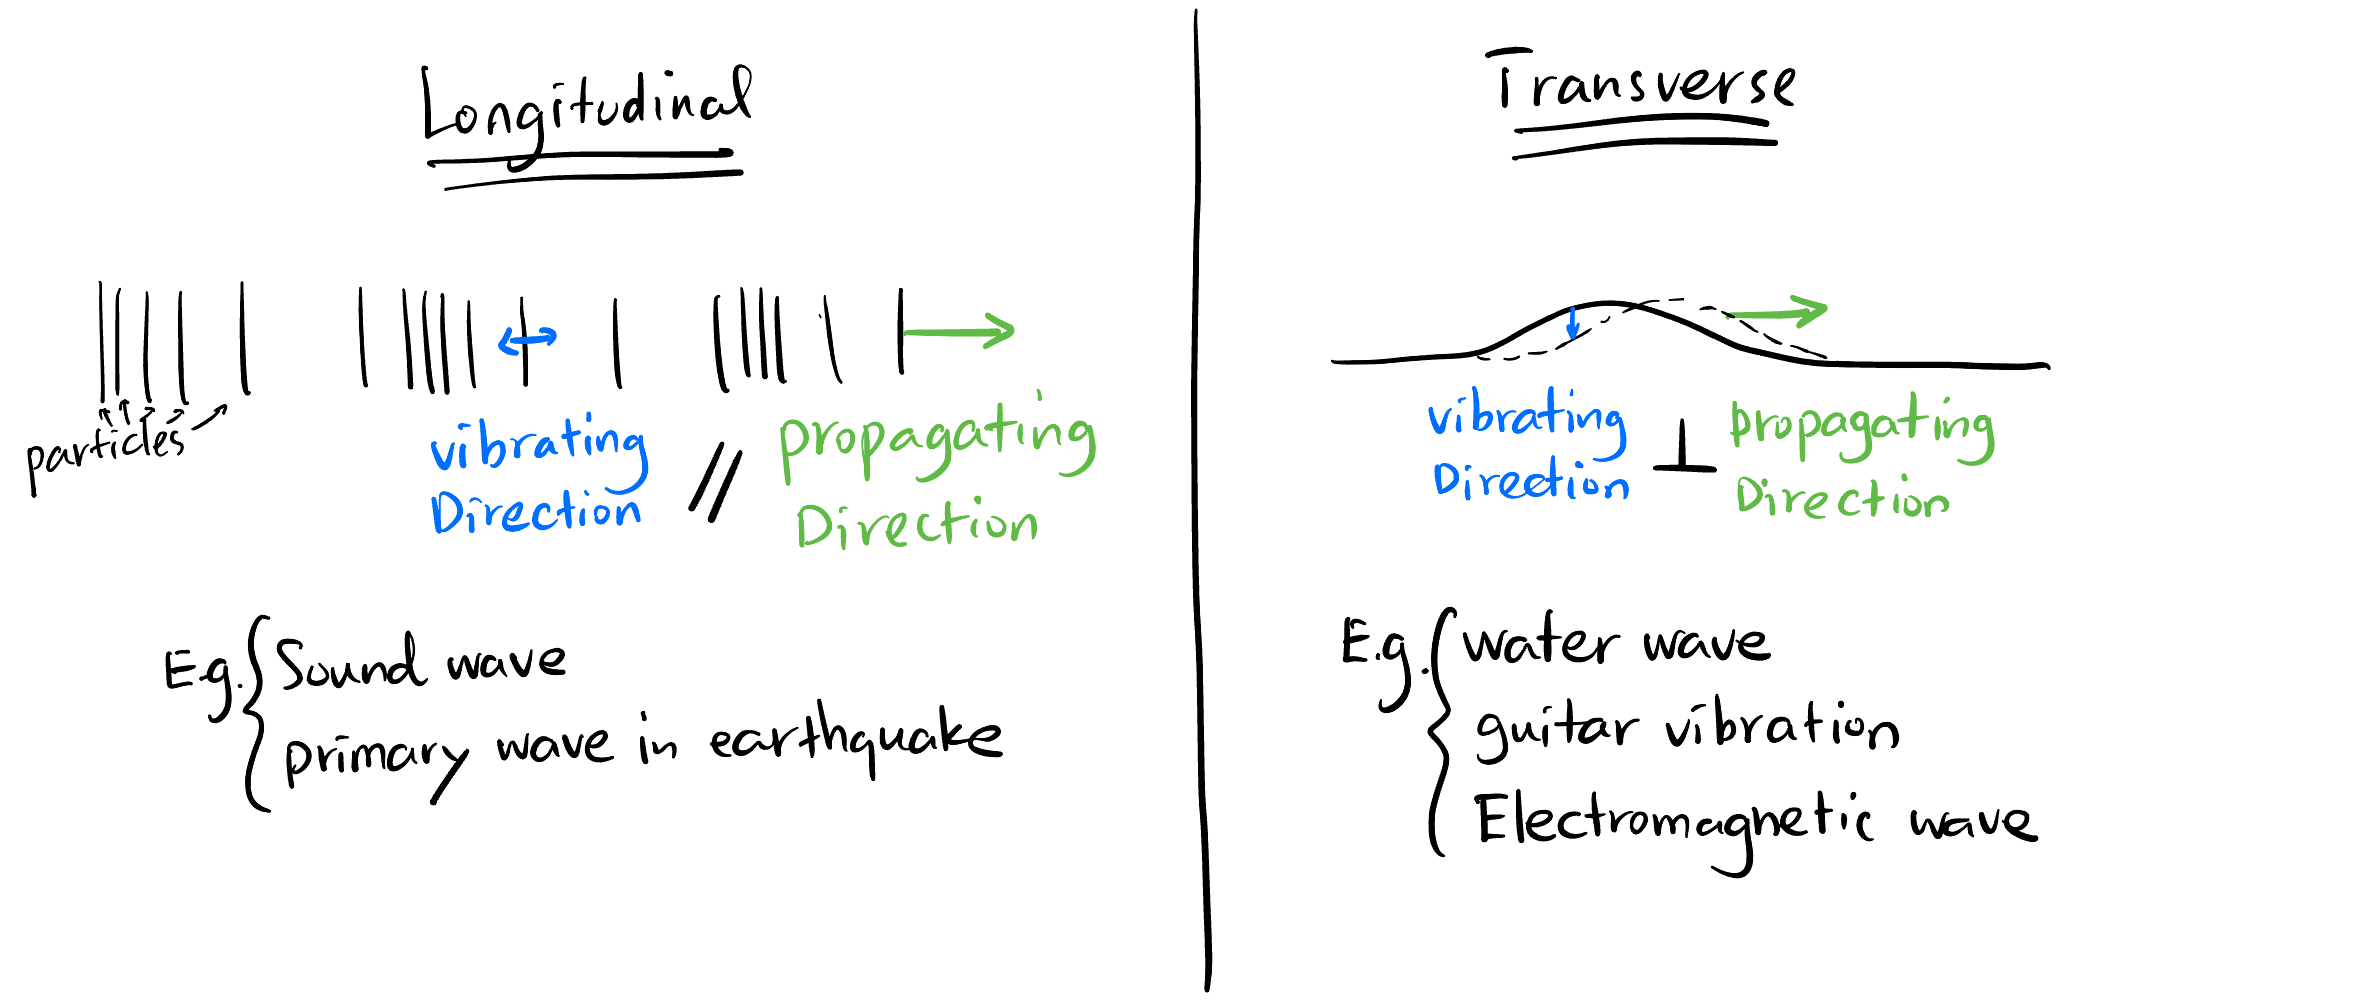 Longitudinal
particles
vibrating
Direction
//
propagating
Direction
E.g. { Sound wave
primary wave in earthquake
Transverse
vibrating
Direction
⊥
propagating
Direction
E.g. { water wave
guitar vibration
Electromagnetic wave